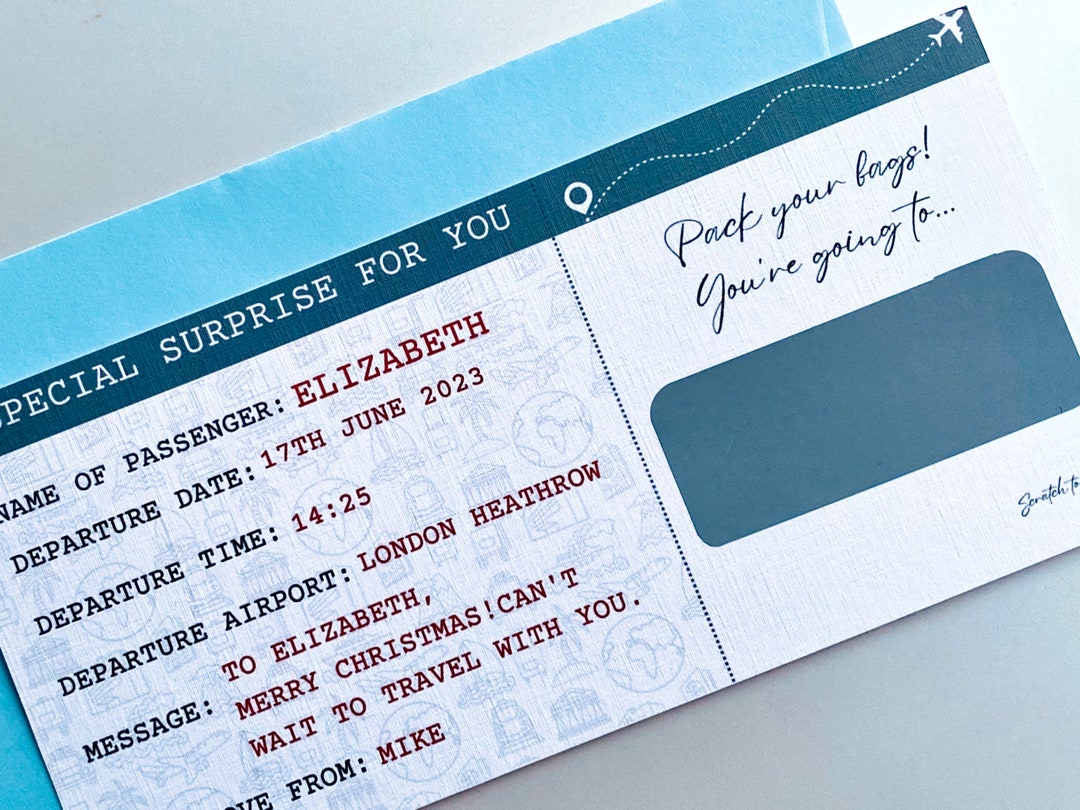 SPECIAL SURPRISE FOR YOU
NAME OF PASSENGER: ELIZABETH
DEPARTURE DATE: 17TH JUNE 2023
DEPARTURE TIME: 14:25
DEPARTURE AIRPORT: LONDON HEATHROW
MESSAGE: TO ELIZABETH,
MERRY CHRISTMAS!CAN'T
WAIT TO TRAVEL WITH YOU.
FROM: MIKE
Pack your bags!
You're going to...
Scratch to